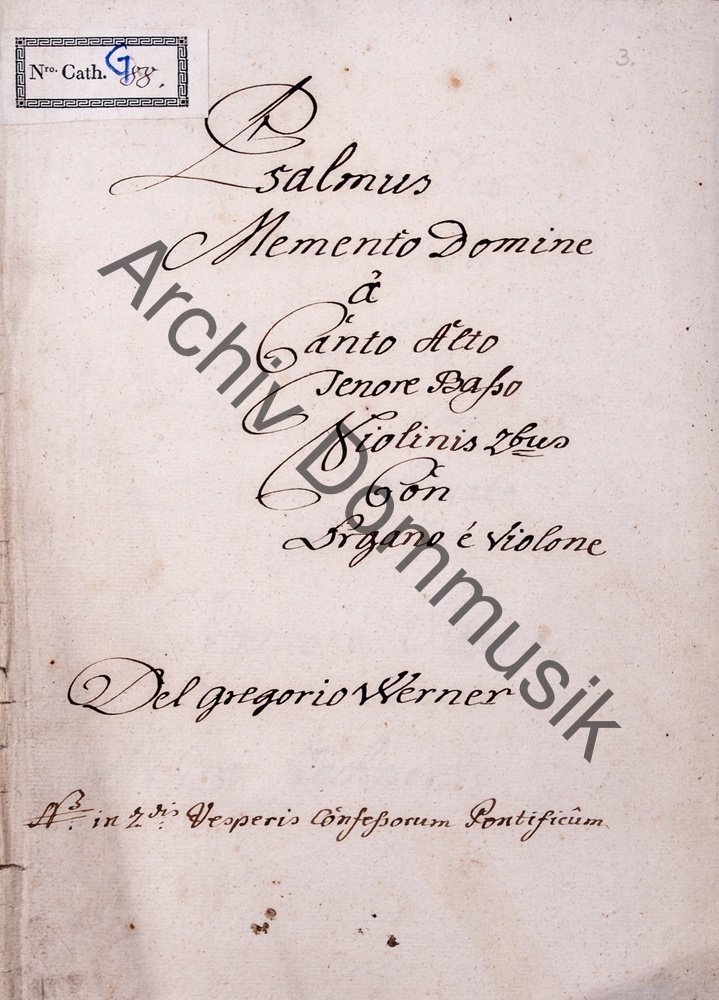 Nro. Cath. G 88.
3.
Psalmus
Memento Domine
à
Canto Alto
Tenore Basso
Violinis 2bus
Con
Organo é Violone
Del gregorio Werner
NB in 2dis Vesperis Confessorum Pontificûm
Archiv Dommusik